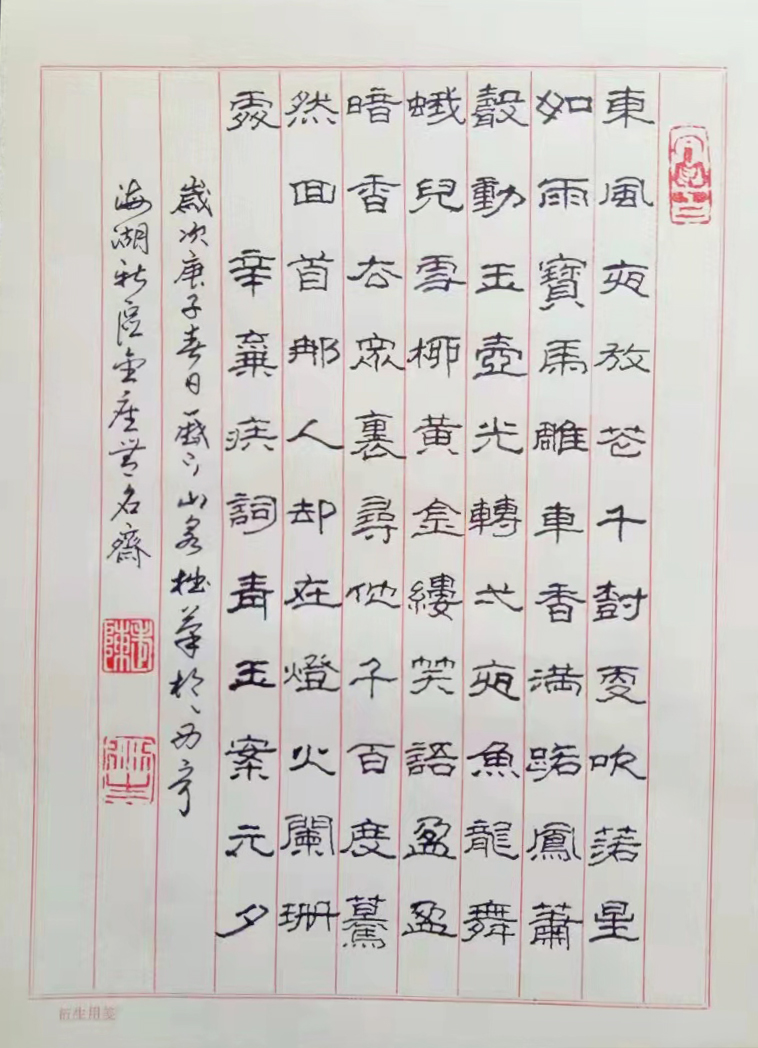 東風夜放花千樹更吹落星
如雨寶馬雕車香滿路鳳簫
聲動玉壺光轉弌夜魚龍舞
蛾兒雪柳黃金縷笑語盈盈
暗香去眾裏尋他千百度驀
然回首那人却在燈火闌珊
處 辛棄疾詞青玉案元夕
歲次庚子春日山客拙筆於西寧
海湖新區金座無名齋
用箋